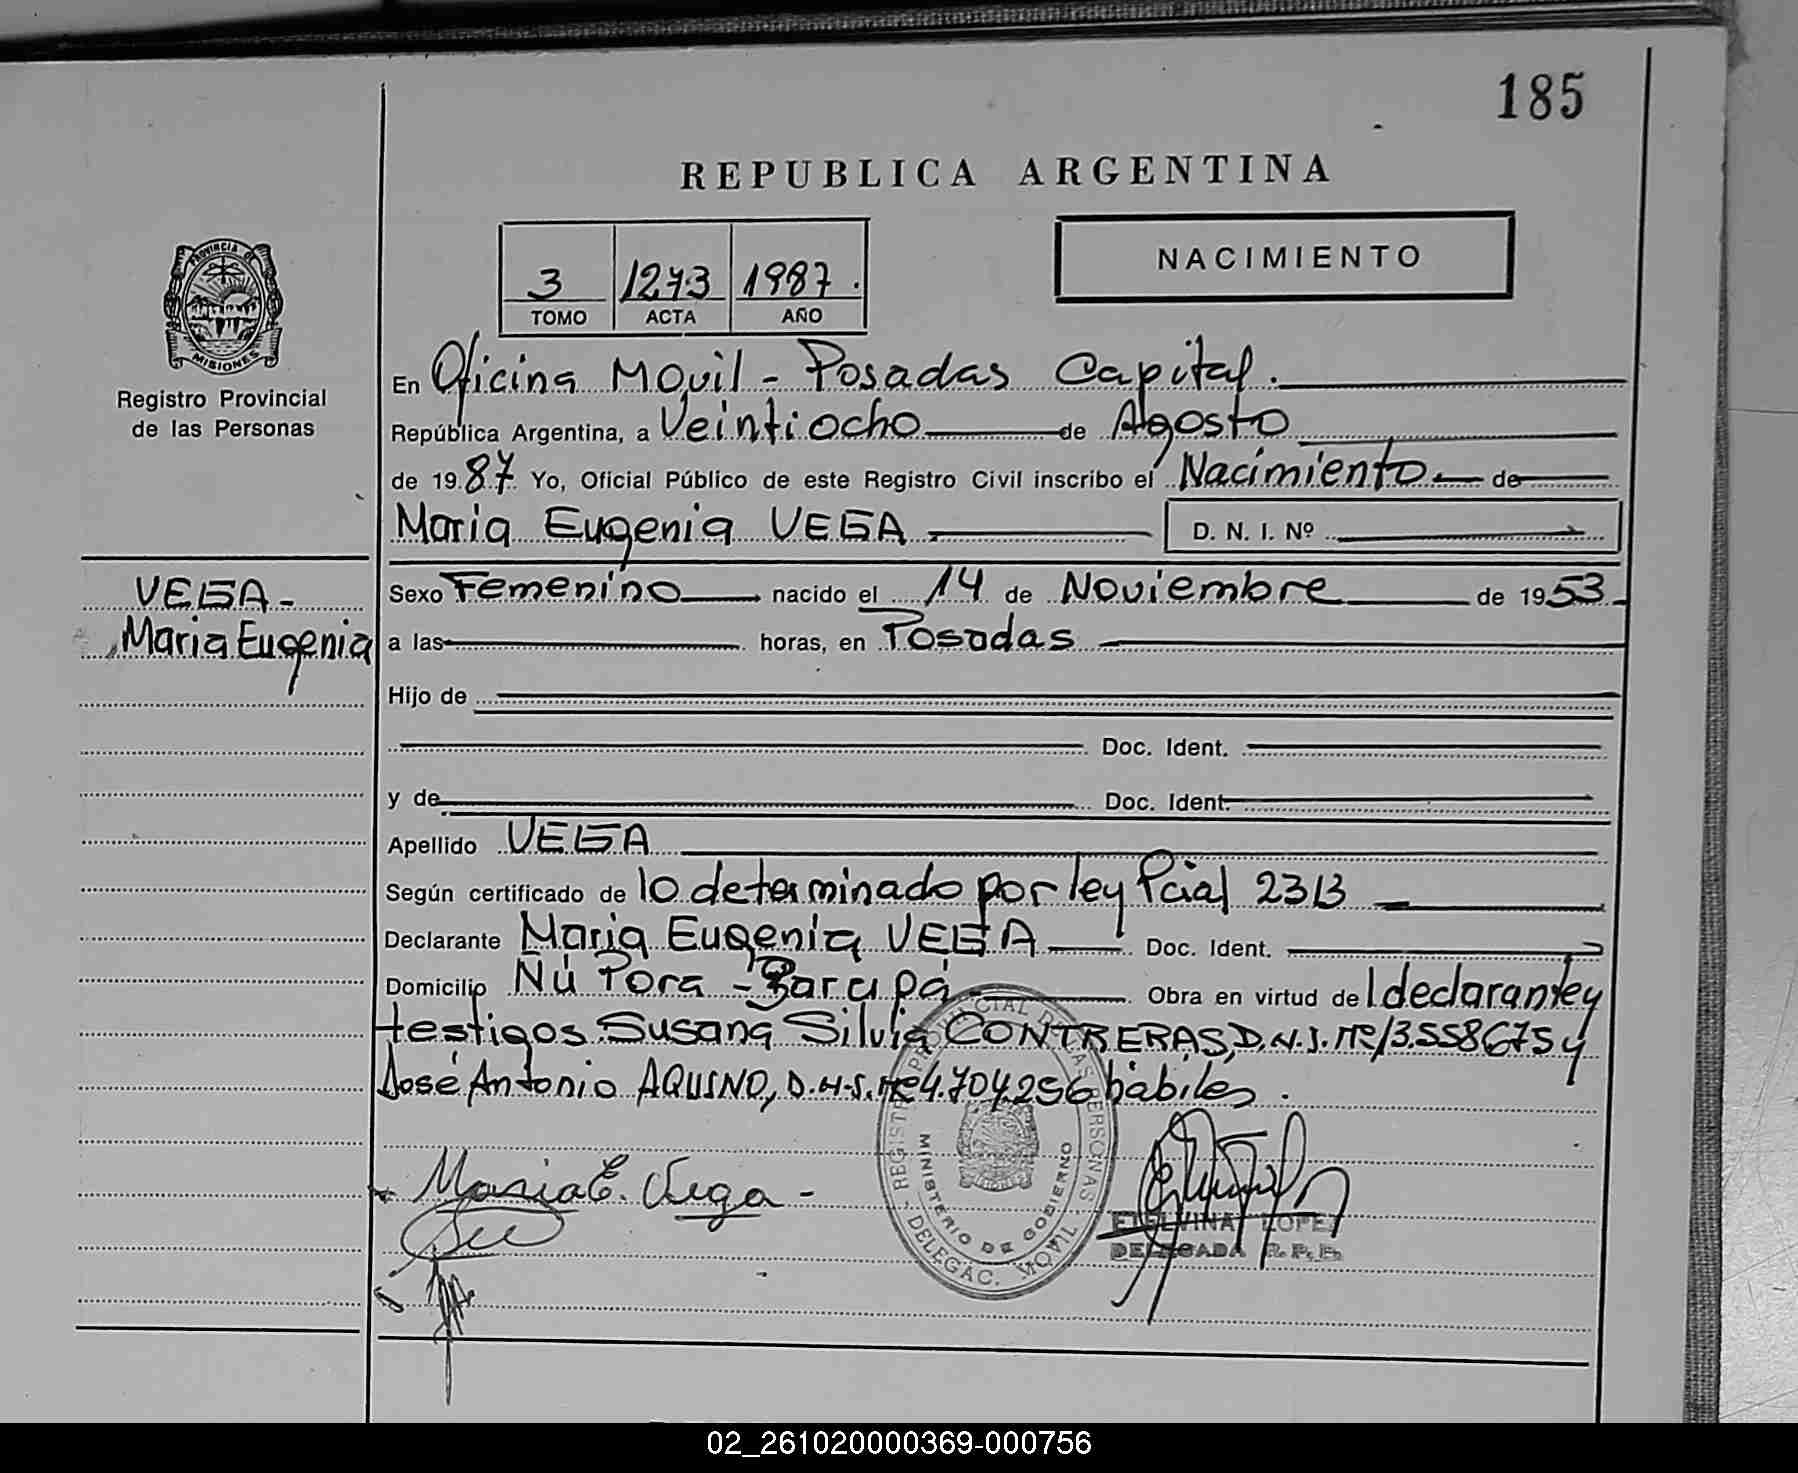 185
REPUBLICA ARGENTINA
NACIMIENTO
3 1273 1987.
TOMO ACTA AÑO
PROVINCIA DE MISIONES
Registro Provincial
de las Personas
En Oficina Movil - Posadas Capital.
República Argentina, a Veintiocho de Agosto
de 1987 Yo, Oficial Público de este Registro Civil inscribo el Nacimiento de
Maria Eugenia VEGA D. N. I. Nº
VEGA -
Maria Eugenia
Sexo Femenino nacido el 14 de Noviembre de 1953
a las horas, en Posadas
Hijo de
Doc. Ident.
y de Doc. Ident.
Apellido VEGA
Según certificado de lo determinado por ley Pcial 2313
Declarante Maria Eugenia VEGA Doc. Ident.
Domicilio Ñú Pora - Garupá Obra en virtud de l declarante y
testigos Susana Silvia CONTRERAS, D.N.I. Nº 13.558675 y
José Antonio AQUINO, D.N.I. Nº 4.704.256 hábiles.
Maria E. Vega -
REGISTRO PROVINCIAL DE LAS PERSONAS
MINISTERIO DE GOBIERNO
DELEGAC. MOVIL
ETELVINA LOPEZ
DELEGADA R. P. P.
02_261020000369-000756